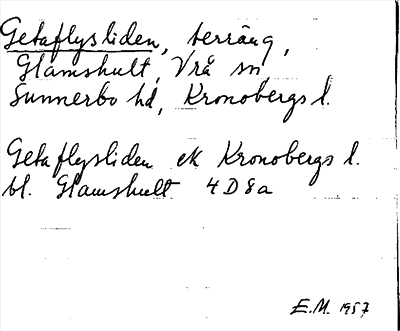 Getaflysliden, terräng,
Glamshult, Vrå sn,
Sunnerbo hd, Kronobergs l.
Getaflysliden ek Kronobergs l.
bl. Glamshult 4D8a
E.M. 1957